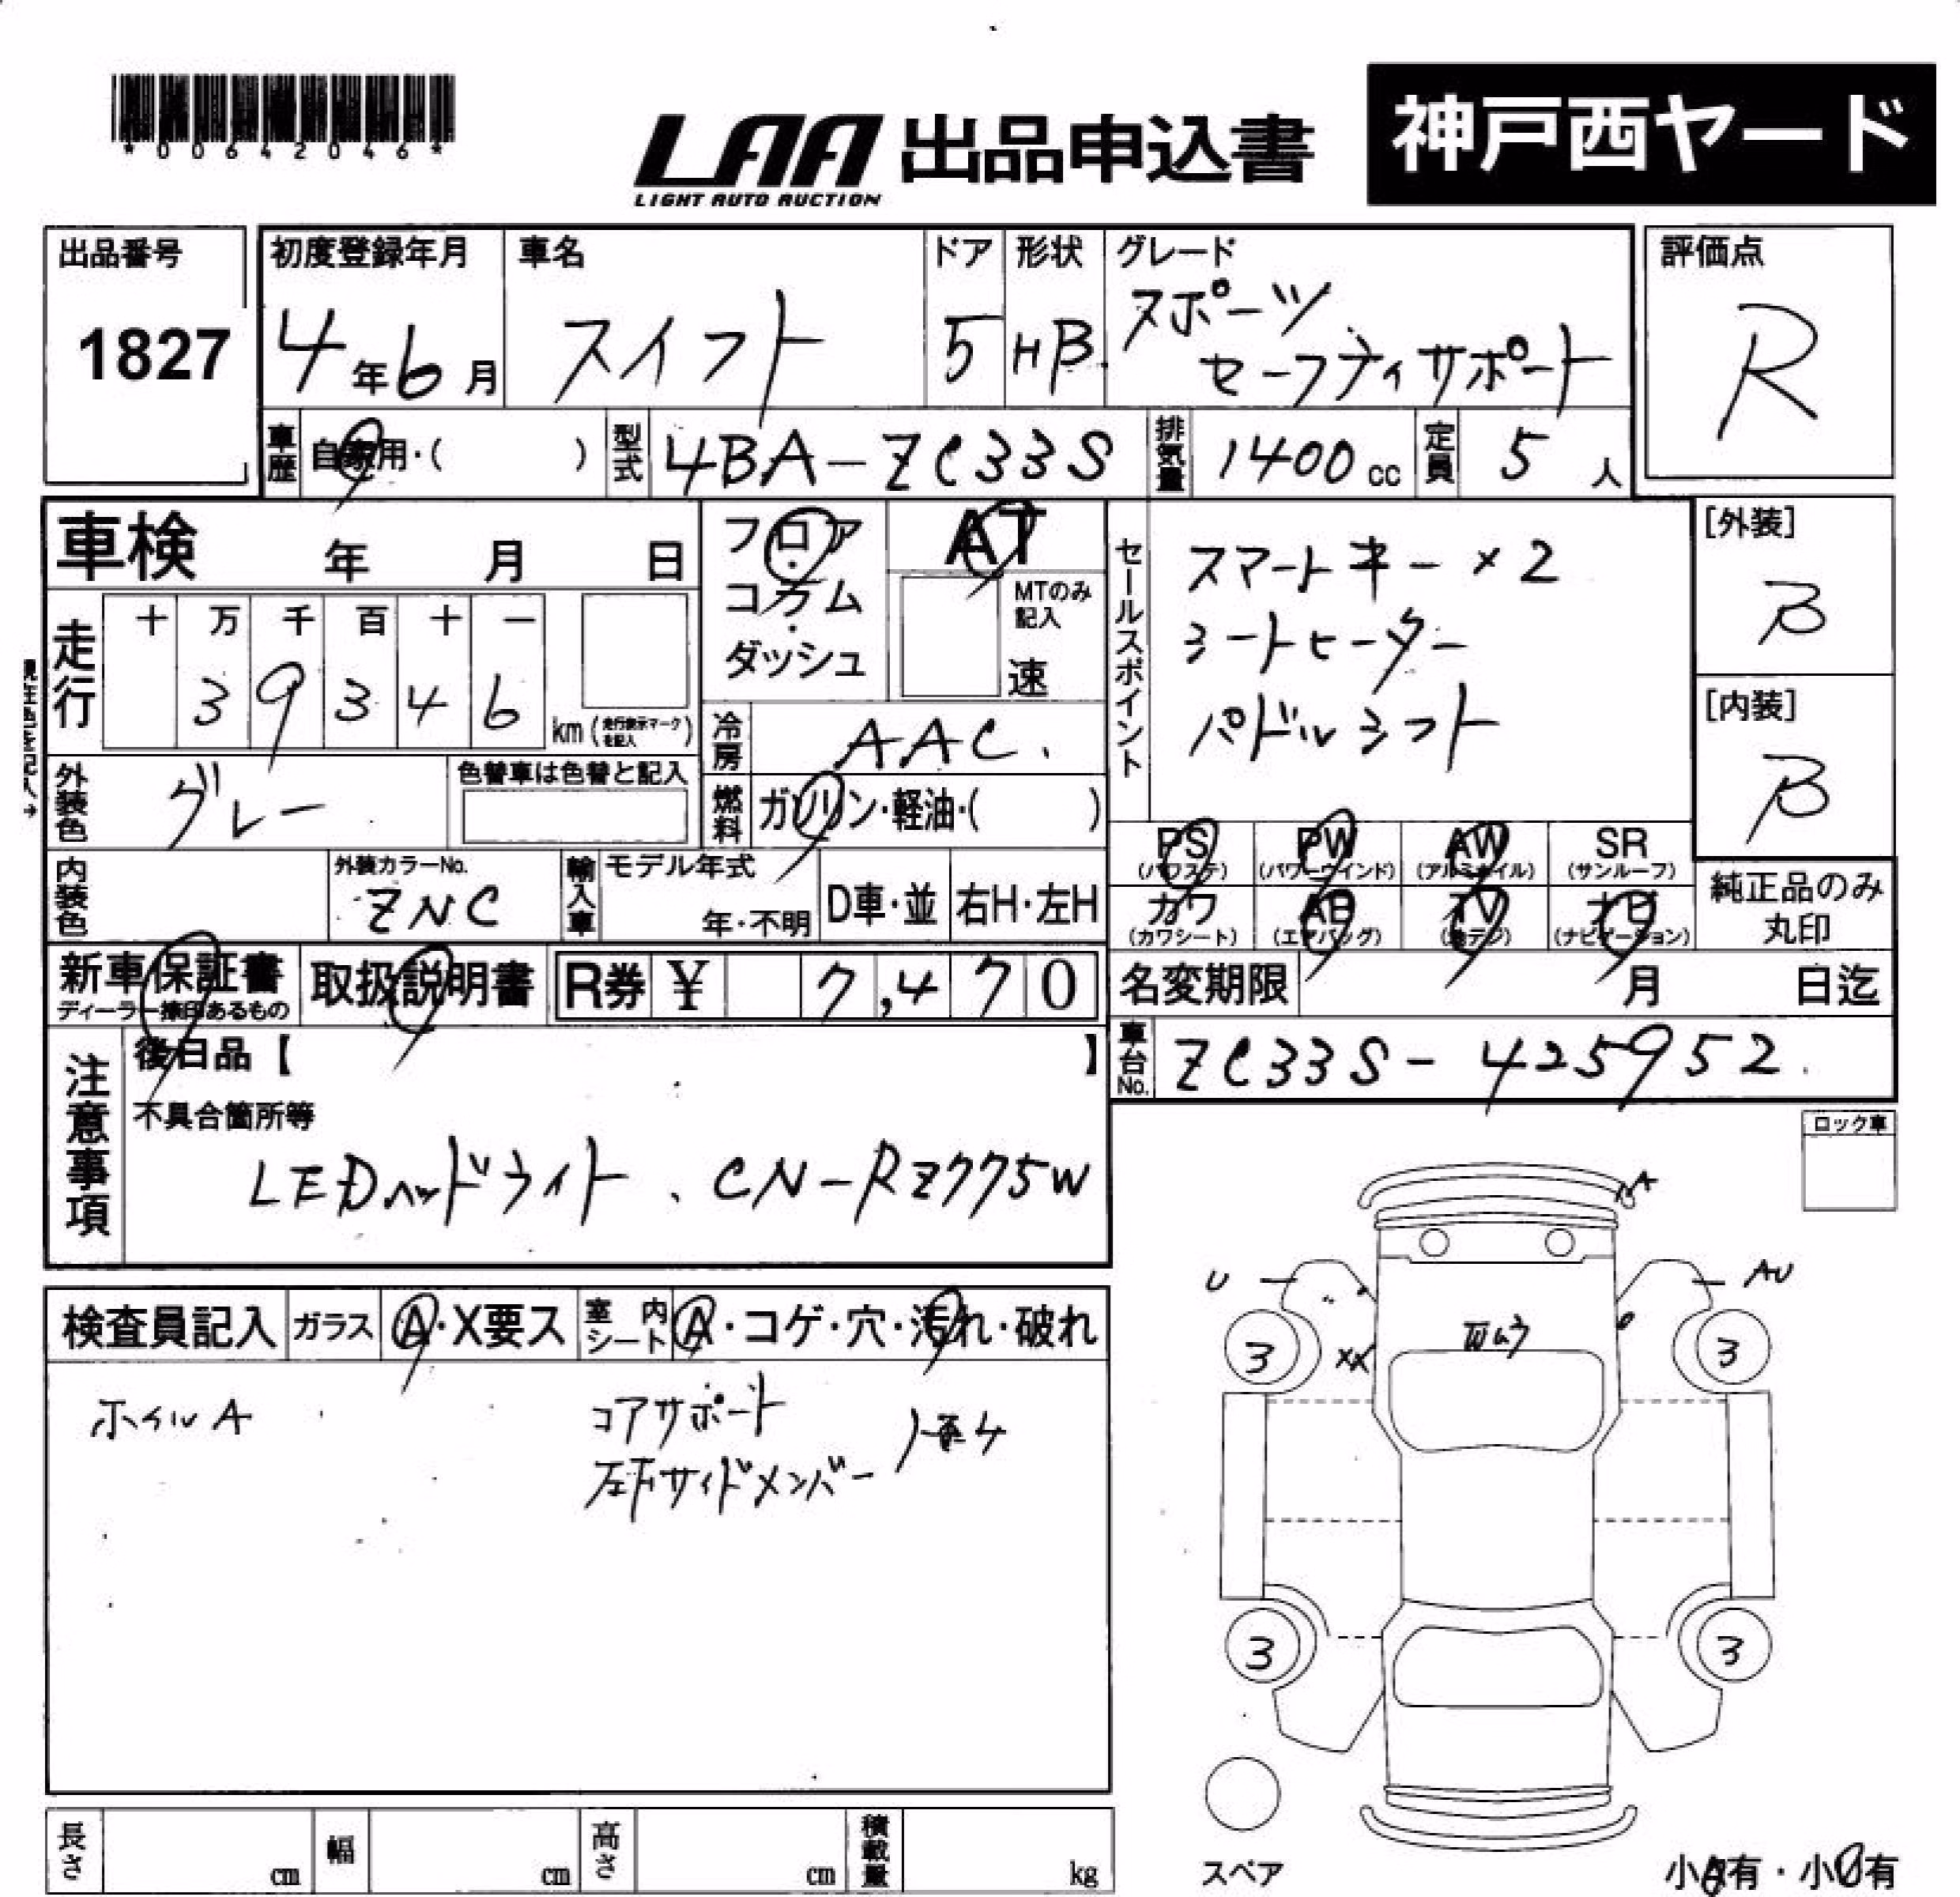 *00642046*
LAA 出品申込書
LIGHT AUTO AUCTION
神戸西ヤード
出品番号
1827
初度登録年月
4年6月
車名
スイフト
ドア
5
形状
HB
グレード
スポーツ
セーフティサポート
評価点
R
車歴
自家用・( )
型式
4BA-ZC33S
排気量
1400cc
定員
5人
車検 年 月 日
フロア
・
コラム
・
ダッシュ
AT
MTのみ
記入
速
走行
十 万 千 百 十 一
3 9 3 4 6
km (走行表示マークを記入)
冷房
AAC.
外装色
グレー
色替車は色替と記入
燃料
ガソリン・軽油・( )
内装色
外装カラーNo.
ZNC
輸入車
モデル年式
年・不明
D車・並
右H・左H
セールスポイント
スマートキー×2
シートヒーター
パドルシフト
[外装]
B
[内装]
B
PS (パワステ)
PW (パワーウインド)
AW (アルミホイル)
SR (サンルーフ)
カワ (カワシート)
AB (エアバッグ)
TV (地デジ)
ナビ (ナビゲーション)
純正品のみ
丸印
新車保証書
ディーラー捺印あるもの
取扱説明書
R券 ¥ 7,470
名変期限 月 日迄
車台No.
ZC33S-425952
注意事項
後日品【 】
不具合箇所等
LEDヘッドライト、CN-RZ775W
ロック車
検査員記入
ガラス
A・X要ス
室内シート
A・コゲ・穴・汚れ・破れ
ホイルA
コアサポート
左右サイドメンバー
A
U
AU
XX
3
3
3
3
スペア
小A有・小U有
長さ cm
幅 cm
高さ cm
積載量 kg